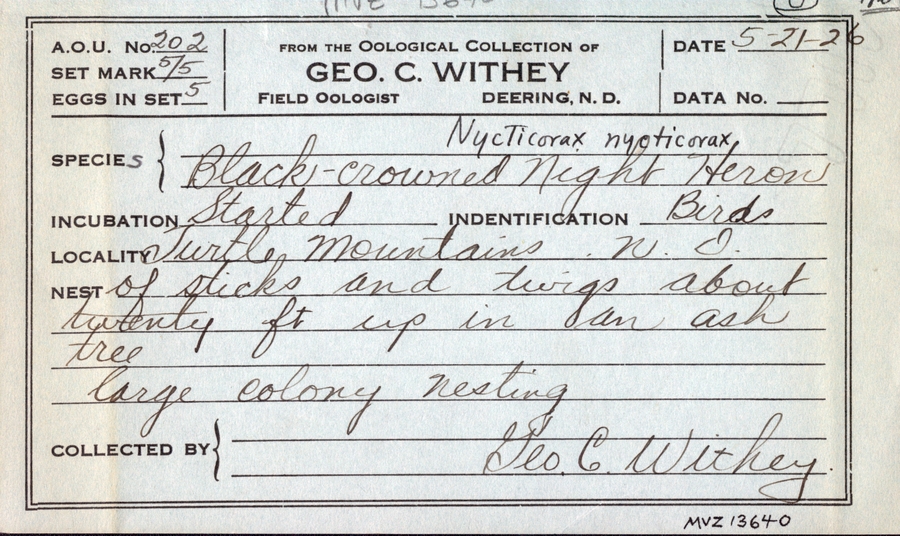 MVZ 13640
A.O.U. No. 202
SET MARK 5/5
EGGS IN SET 5
FROM THE OOLOGICAL COLLECTION OF
GEO. C. WITHEY
FIELD OOLOGIST DEERING, N. D.
DATE 5-21-26
DATA No.
Nycticorax nycticorax
SPECIES Black-crowned Night Heron
INCUBATION Started INDENTIFICATION Birds
LOCALITY Turtle Mountains. N. D.
NEST of sticks and twigs about
twenty ft up in an ash
tree
large colony nesting
COLLECTED BY Geo. C. Withey.
MVZ 13640